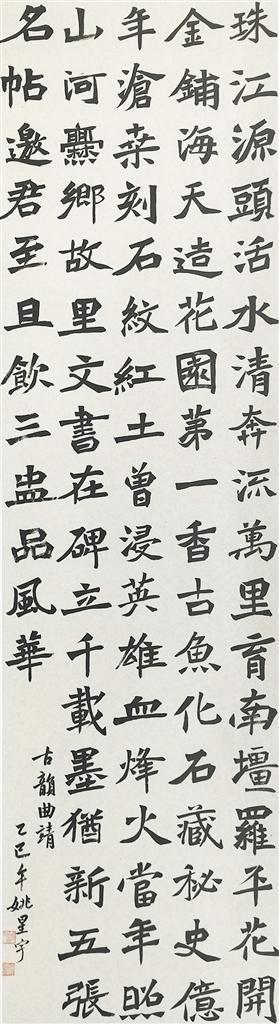 珠江源頭活水清奔流萬里育南壃羅平花開
金鋪海天造花園第一香古魚化石藏秘史億
年滄桒刻石紋紅土曾浸英雄血烽火當年照
山河爨鄉故里文書在碑立千載墨猶新五張
名帖邀君至且飲三盅品風華
古韻曲靖
乙巳年姚星宇